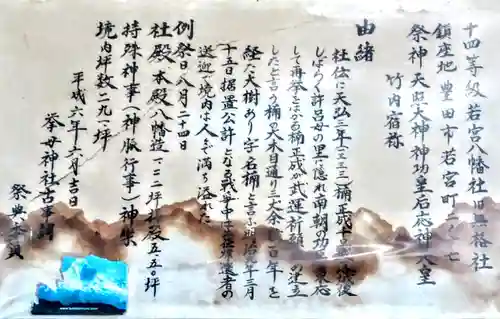 十四等級 若宮八幡社 旧無格社
鎮座地 豊田市若宮町二ノ七
祭神 天照大神 神功皇后 応神天皇
竹内宿祢
由緒
社伝に天弘三年(一三三三)楠正成千早落城後
しばらく許呂母の里へ隠れ南朝功
して再挙とはかる楠正成が武運祈願 建立
したと言う楠の大木目通り三丈余 百年を
経た大樹あり字名楠と言う明治 年三月
十五日指置公許になる戦争中は 者の
送迎で境内は人々で満ち溢れた
例祭日八月二十四
社殿 本殿八幡造一、二二坪 拝殿五、五〇坪
特殊神事(神賑行事)神楽
境内坪数二九一坪
平成六年六月吉日
挙母神社古事
祭典